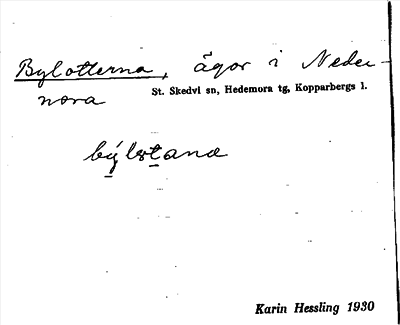 Bylotterna, ägor i Neder-
nora
St. Skedvi sn, Hedemora tg, Kopparbergs l.
Karin Hessling 1930